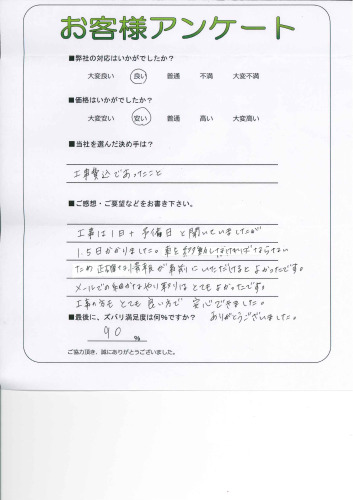 お客様アンケート
■弊社の対応はいかがでしたか?
大変良い 良い 普通 不満 大変不満
■価格はいかがでしたか?
大変安い 安い 普通 高い 大変高い
■当社を選んだ決め手は?
工事費込であったこと
■ご感想・ご要望などをお書き下さい。
工事は1日+予備日と聞いていましたが
1.5日かかりました。車を移動しなければならない
ため正確な情報が事前にいただけるとよかったです。
メールでの細かなやり取りはとてもよかったです。
工事の方もとても良い方で安心できました。
ありがとうございました。
■最後に、ズバリ満足度は何%ですか?
90 %
ご協力頂き、誠にありがとうございました。